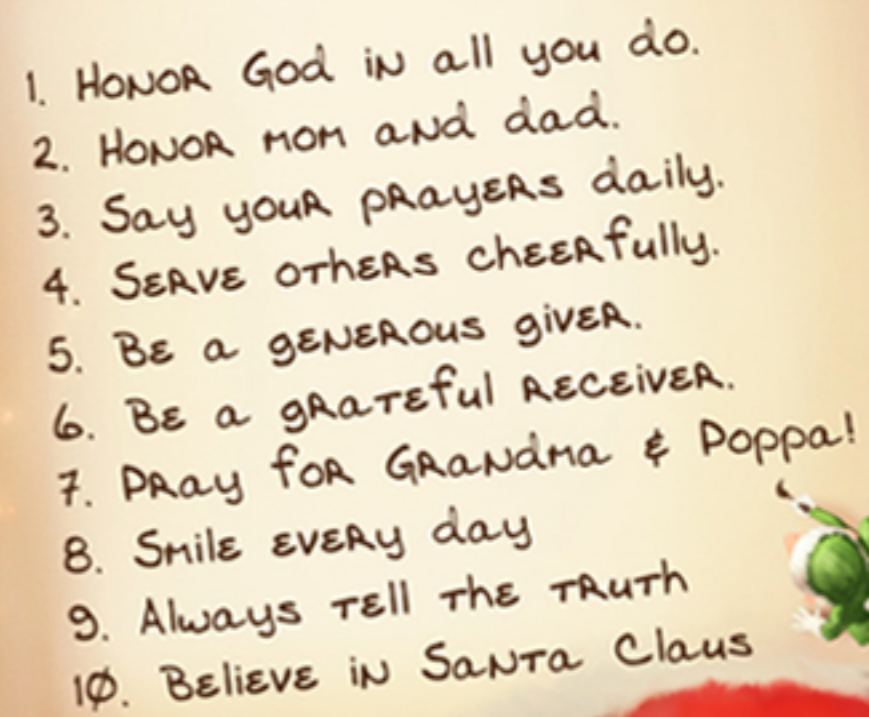 1. Honor God in all you do.
2. Honor mom and dad.
3. Say your prayers daily.
4. Serve others cheerfully.
5. Be a generous giver.
6. Be a grateful receiver.
7. Pray for Grandma & Poppa!
8. Smile every day
9. Always tell the truth
10. Believe in Santa Claus